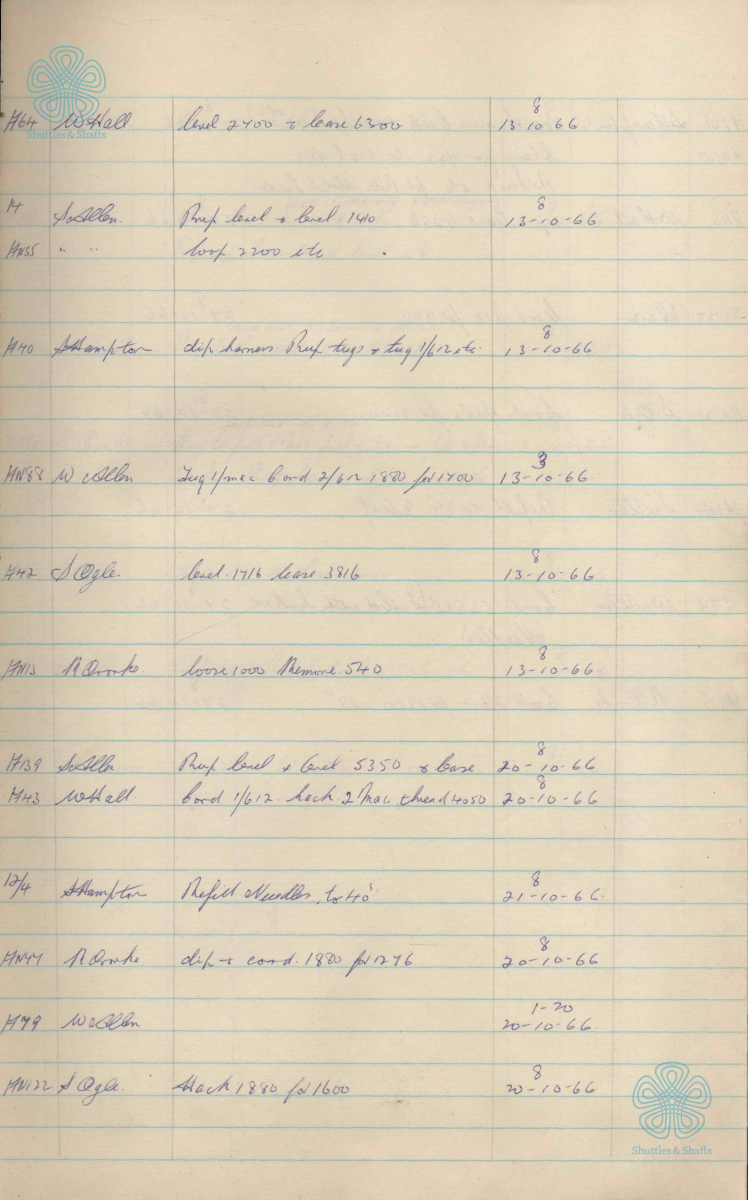 8
H64 W Hall level 2400 & lease 6300 13-10-66
Shuttles & Shafts
8
S. Allen. Prep level & level 1410 13-10-66
HN35 " " loop 2200 etc
8
H40 S Hampton clip harness Prep tugs & tug 1/612 etc. 13-10-66
3
HN88 W Allen Tug 1/mac Cord 2/612 1880 for 1400 13-10-66
8
H42 S Ogle. level 1716 lease 3816 13-10-66
8
HN13 R Ororke. loose 1000 Remove 540 13-10-66
8
H139 S. Allen Prep level & level 5350 & lease 20-10-66
8
H43 W Hall. Cord 1/612. hack 2 Mac. thread 4050 20-10-66
8
12/4 S Hampton Refill Needles, to 40's 21-10-66.
8
HN47 R Ororke clip & cord. 1880 for 1276 20-10-66
1-20
H79 W Allen 20-10-66.
8
HN122 S Ogle. Hack 1880 for 1600 20-10-66
Shuttles & Shafts